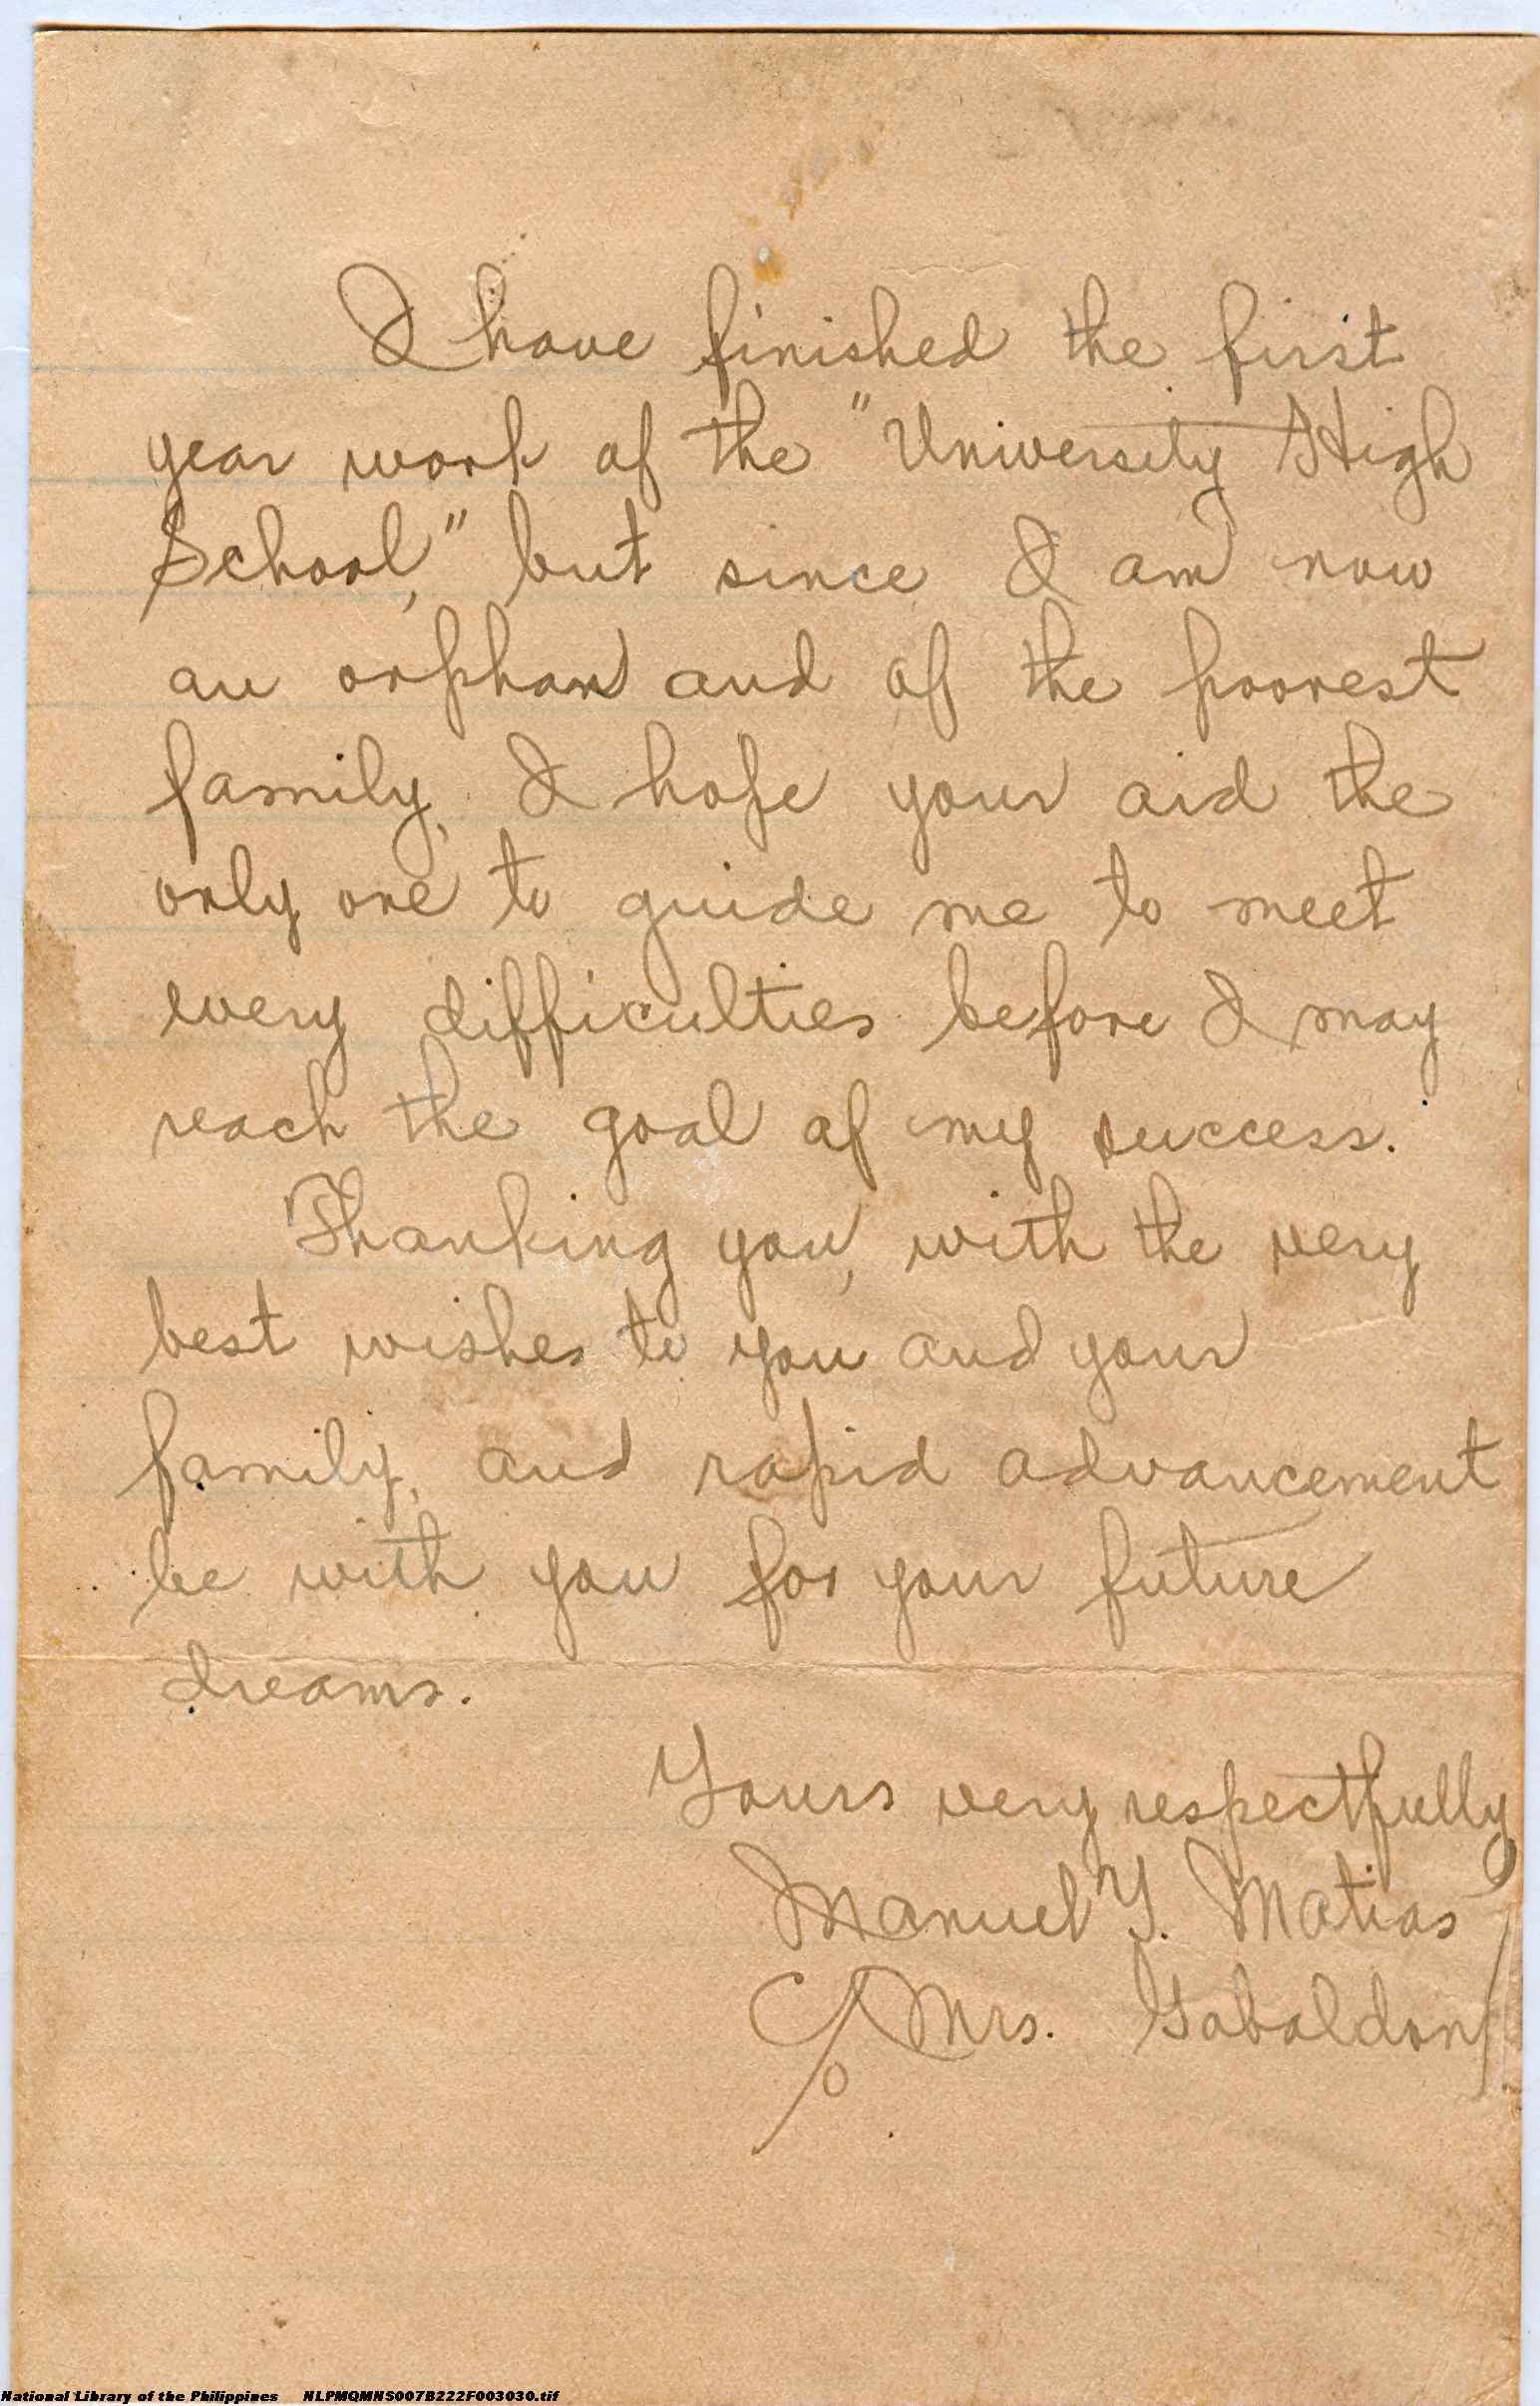 I have finished the first
year work of the "University High
School," but since I am now
an orphan and of the poorest
family, I hope your aid the
only one to guide me to meet
every difficulties before I may
reach the goal of my success.
Thanking you, with the very
best wishes to you and your
family, and rapid advancement
be with you for your future
dreams.
Yours very respectfully
Manuel Y. Matias
C/o Mrs. Gabaldon
National Library of the Philippines NLPMQMNS007B222F003030.tif